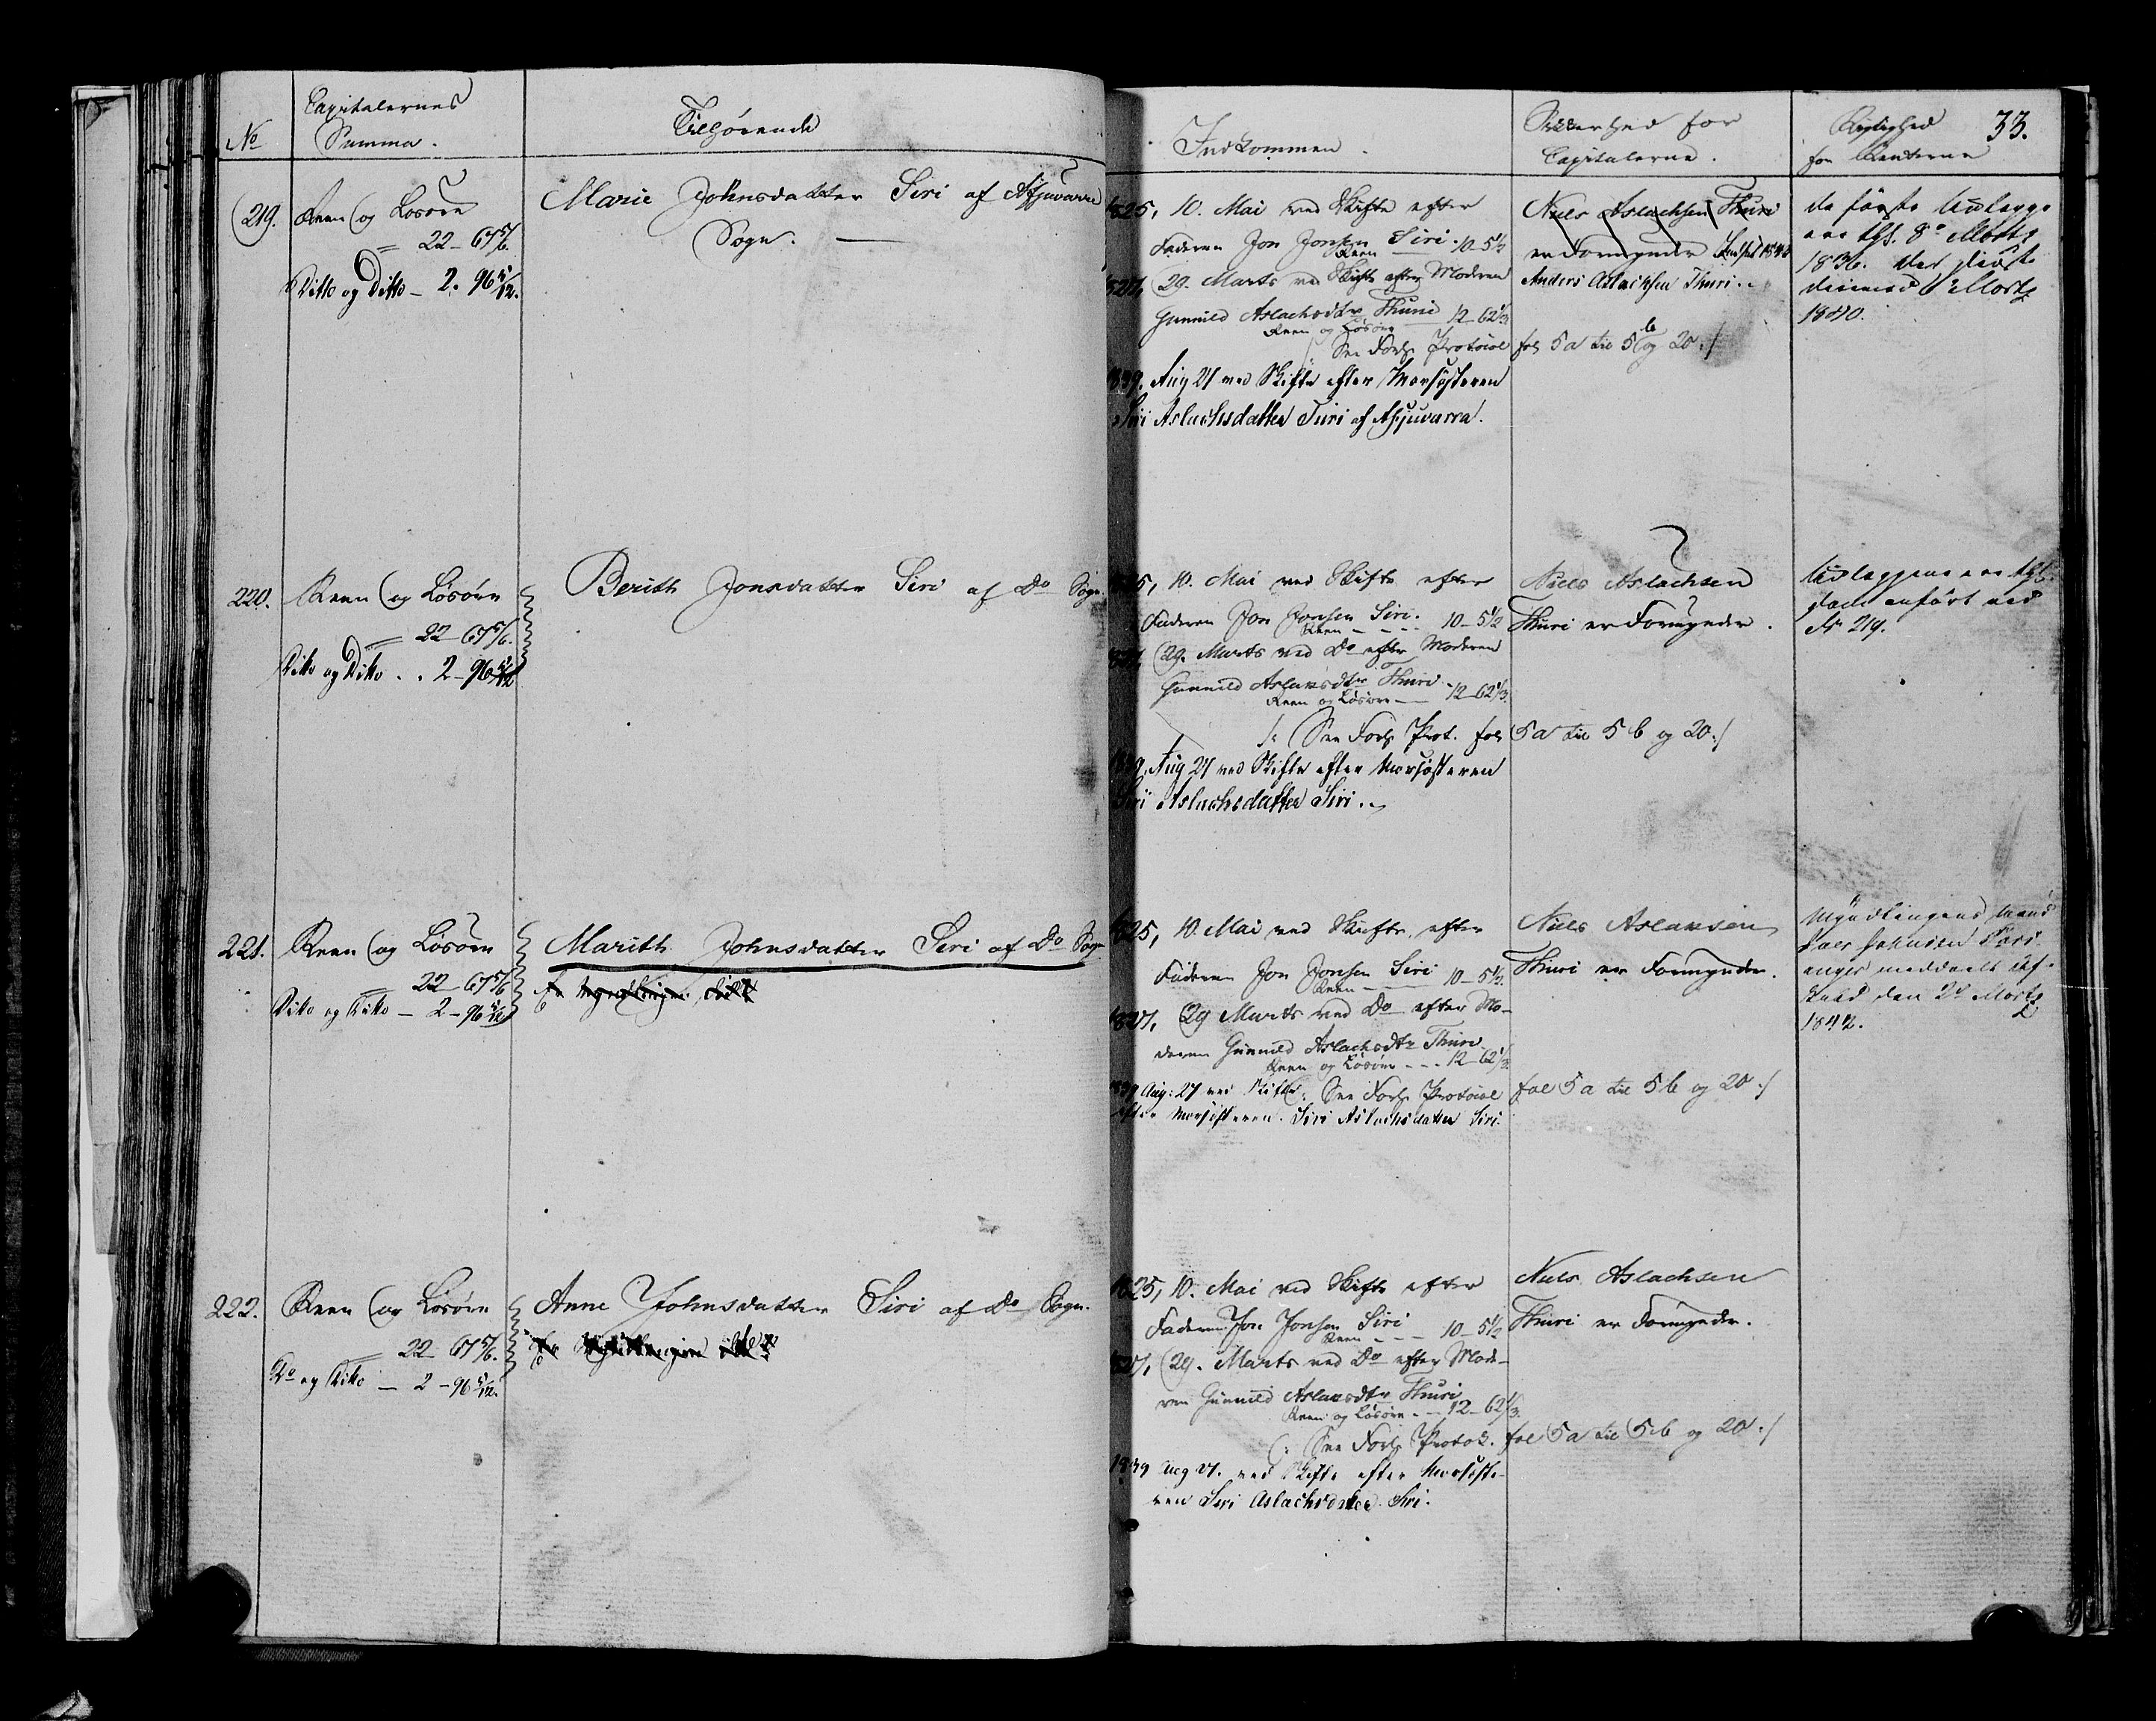 No
Capitalernes
Summa.
Tilhørende
219. Reen og Løsøre
22 - 67 5/6.
Ditto og Ditto - 2. 96 5/12.
Marie Johnsdatter Siri af Afjuvarra
Sogn.
220. Reen og Løsøre
22 - 67 5/6.
Ditto og Ditto . . 2 - 96 5/12
Berith Jonsdatter Siri af Do Sogn.
221. Reen og Løsøre
22 - 67 5/6
Ditto og Ditto - 2 - 96 5/12
Marith Johnsdatter Siri af Do Sogn
222. Reen og Løsøre
22 - 67 5/6.
Do og Ditto - 2 - 96 5/12.
Anne Johnsdatter Siri af Do Sogn.
Indkommen.
Sikkerhed for
Capitalerne.
Rigtighed
for Renterne
33.
1825, 10. Mai ved Skifte efter
Faderen Jon Jonsen Siri.
Reen 10 - 5 1/2
1827, 29. Marts ved Skifte efter Moderen
Gunnild Aslachsdtr Thuri
Reen og Løsøre 12 - 62 1/3
See Forh. Protocol fol 5 a til 5 b og 20 :/
1839. Aug 27 ved Skifte efter Morsøsteren
Siri Aslachsdatter Siri af Afjuvarra.
Niels Aslachsen Thuri
er Formynder
Anders Aslachsen Thuri.
de første Udlægge
8de Marts
1836.
Marts
1840.
1825, 10. Mai ved Skifte efter
Faderen Jon Jonsen Siri.
Reen - - - 10 - 5 1/2
1827, 29. Marts ved Do efter Moderen
Gunnild Aslaksdtr Thuri
Reen og Løsøre - 12 - 62 1/3.
/: See Forh. Prot. fol 5 a til 5 b og 20 :/
1839, Aug 27 ved Skifte efter Morsøsteren
Siri Aslachsdatter Siri.
Niels Aslachsen
Thuri er Formynder.
Udlæggene
anført ved
No 219.
1825, 10. Mai ved Skifte, efter
Faderen Jon Jonsen Siri
Reen 10 - 5 1/2.
1827, 29 Marts ved Do efter Mo-
deren Gunnild Aslachsdtr Thuri
Reen og Løsøre - - - 12 - 62 1/3.
1839 Aug: 27 ved Skifte /: See Forh. Protocol fol 5 a til 5 b og 20 :/
efter Morsøsteren. Siri Aslachsdatter Siri.
Niels Aslaksen
Thuri er Formynder.
Myndlingens Mand
meddeelt Af-
den 2den Marts
1842.
1825, 10. Mai ved Skifte efter
Faderen Jon Jonsen Siri
Reen - - - 10 - 5 1/2
1827, 29. Marts ved Do efter Mode-
ren Gunnild Aslaksdtr Thuri
Reen og Løsøre - - 12 - 62 1/3.
/: See Forh. Protok. fol 5 a til 5 b og 20 :/
1839 Aug 27. ved Skifte efter Morsøste-
ren Siri Aslachsdatter Siri.
Niels Aslachsen
Thuri er Formynder.